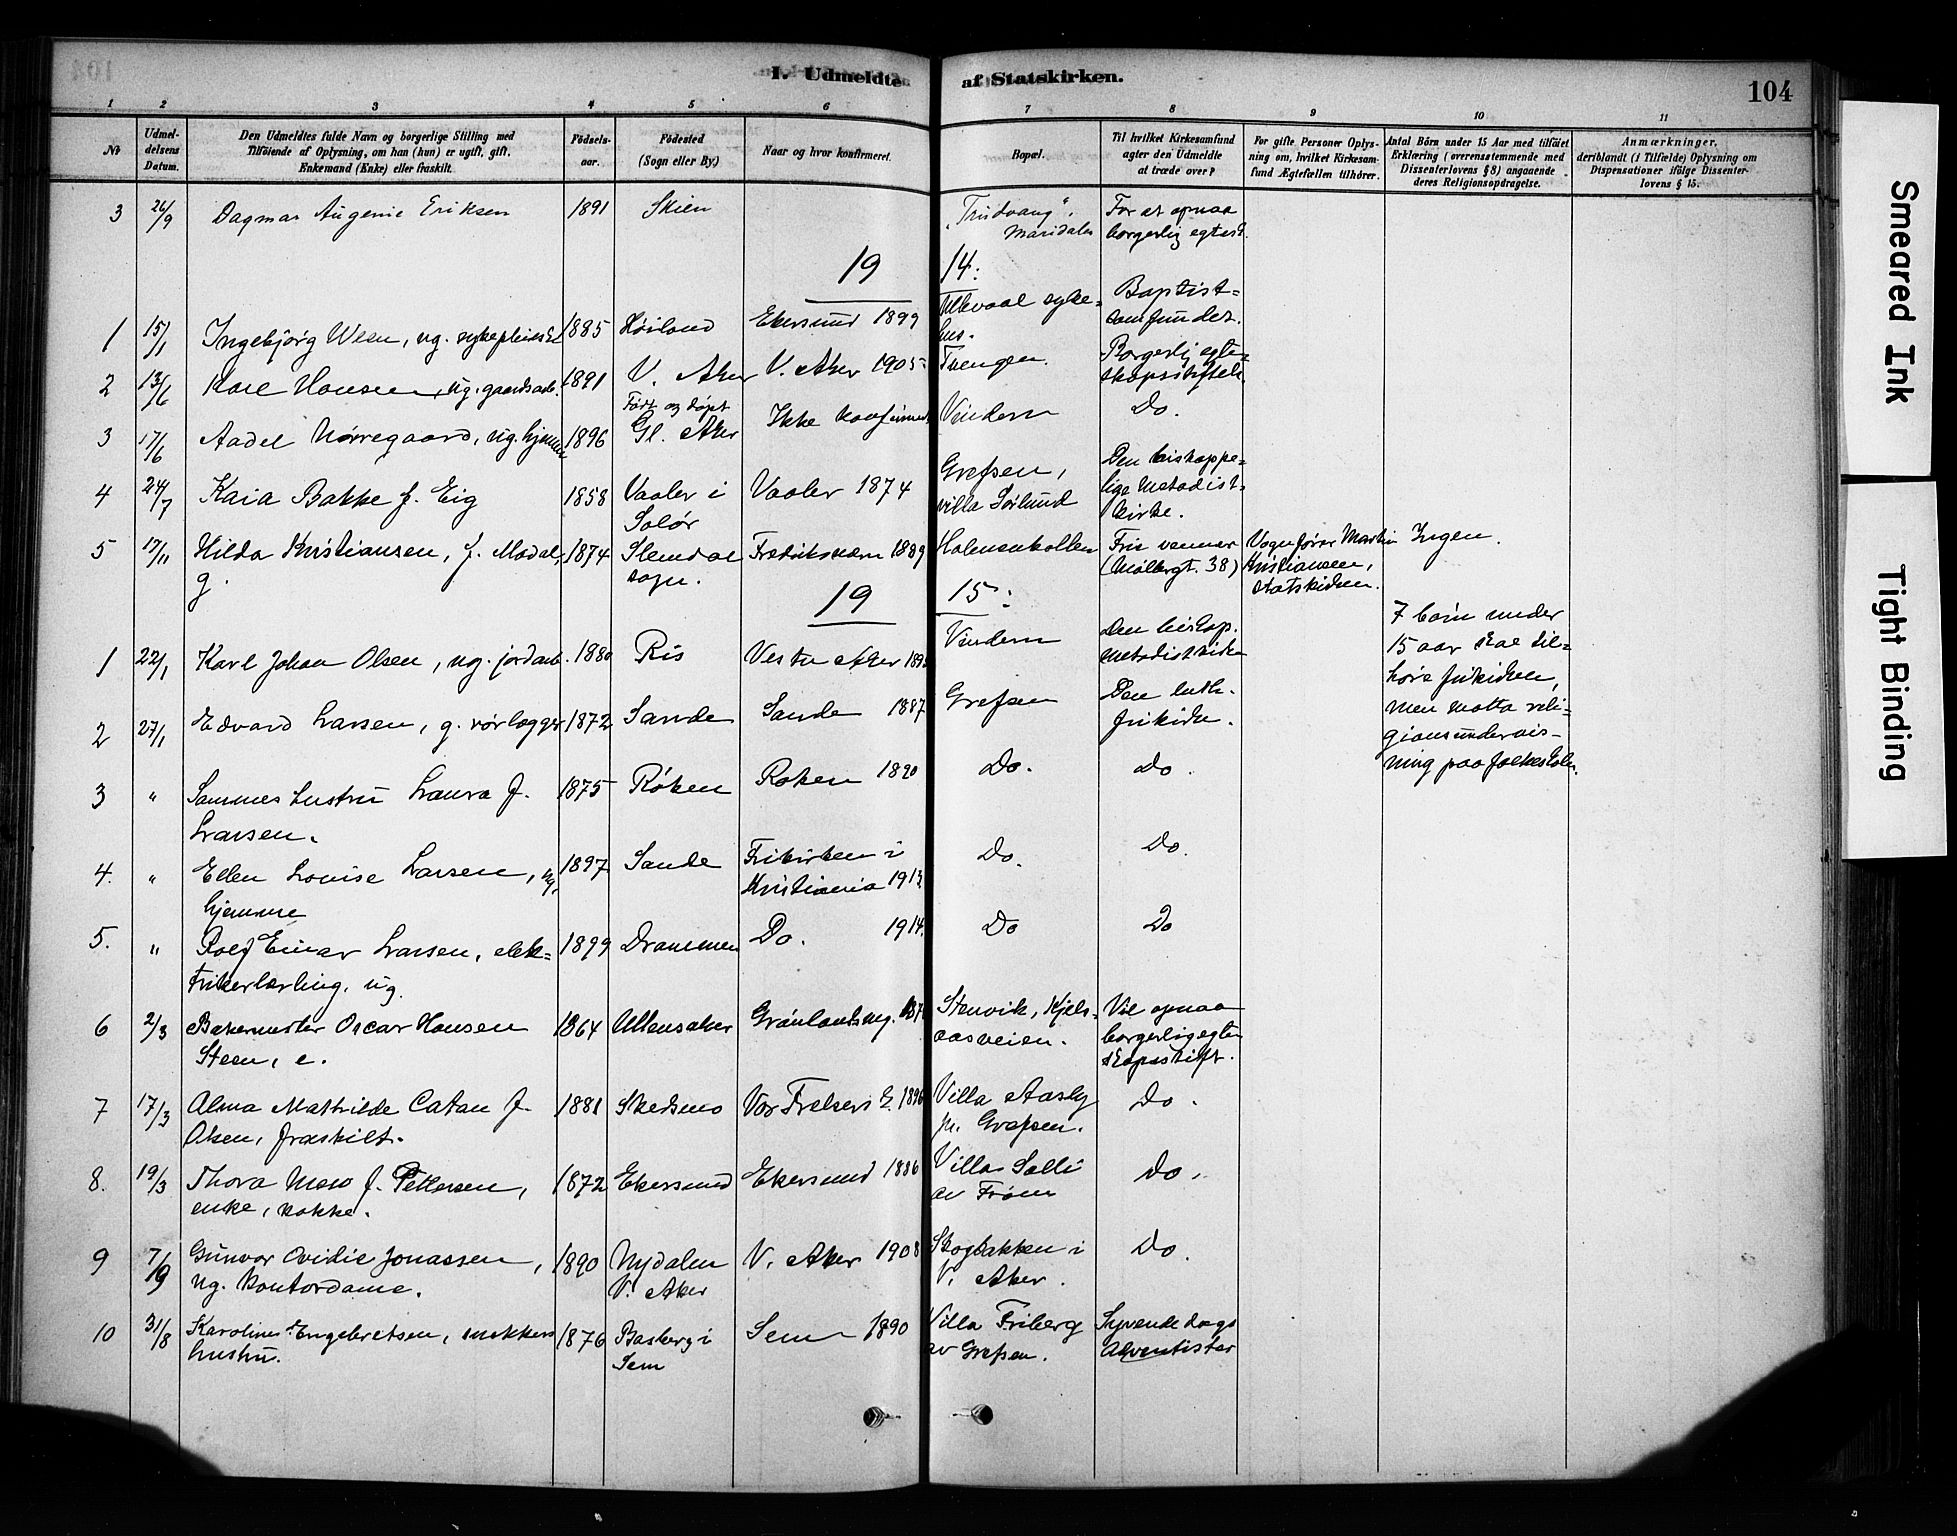 I. Udmeldte af Statskirken.
104
1 2 3 4 5 6 7 8 9 10 11
No
Udmeldelsens Datum.
Den Udmeldtes fulde Navn og borgerlige Stilling med
Tilføiende af Oplysning, om han (hun) er ugift, gift,
Enkemand (Enke) eller fraskilt.
Fødselsaar.
Fødested
(Sogn eller By.)
Naar og hvor konfirmeret.
Bopæl.
Til hvilket Kirkesamfund
agter den Udmeldte
at træde over?
For gifte Personer Oplys-
ning om, hvilket Kirkesam-
fund Ægtefællen tilhører.
Antal Börn under 15 Aar med tilföiet
Erklæring (overensstemmende med
Dissenterlovens § 8) angaaende
deres Religionsopdragelse.
Anmærkninger,
deriblandt (i Tilfælde) Oplysning om
Dispensationer ifölge Dissenter-
lovens § 15.
3 26/9 Dagmar Augenie Eriksen 1891 Skien "Trudvang", Maridalen For at opnaa borgerlig egtesk.
19 14:
1 15/1 Ingebjørg Ween, ug. 1885 Høiland Ekersund 1899 Ullevaal sykehus. Baptistsamfundet.
2 13/6 Kare Hansen, ug. gaardsarb. 1891 V. Aker V. Aker 1905 Tvengen. Borgerlig egteskapsstiftels.
3 17/6 Aadel Nørregaard, ug. hjemme 1896 Født og døpt Gl. Aker Ikke konfirmert Vindern Do.
4 24/7 Kaia Bakke f. Eig 1858 Vaaler i Solør Vaaler 1874 Grefsen, villa Sørlund Den biskoppelige Metodistkirke.
5 17/11 Hilda Kristiansen, f. Modal, g. 1874 Slemdal sogn. Fredriksværn 1889 Holmenkollen Frie venner (Møllergt. 38) Vognfører Martin Kristiansen, statskirken. Ingen.
19 15:
1 22/1 Karl Johan Olsen, ug. jordarb. 1880 Ris Vestre Aker Vindern Den biskop. metodistkirke
2 27/1 Edvard Larsen, g. rørlægger 1872 Sande Sande 1887 Grefsen Den luth. frikirke. 7 børn under
15 aar skal til-
høre frikirken,
men motta reli-
gionsundervis-
ning paa folkeskolen.
3 " Sammes hustru Laura f. Larsen. 1875 Røken Røken 1890 Do. Do.
4. " Ellen Louise Larsen, ug. hjemme 1897 Sande Frikirken i Kristiania 1913. Do. Do.
5. " Rolf Einar Larsen, elektrikerlærling, ug. 1899 Drammen Do. 1914. Do Do
6 2/3 Bakermester Oscar Hansen Steen, e. 1864 Ullensaker Grønlands mg. Stenvik, Kjelsaasveien. Vil opnaa borgerlig egteskapsstift.
7 17/3 Alma Mathilde Catan f. Olsen, fraskilt. 1881 Skedsmo Vor Frelsers k. 1896 Villa Aasly pr. Grefsen. Do.
8. 19/3 Thora Moso f. Pettersen, enke, kokke. 1872 Ekersund Ekersund 1886 Villa Solli av Frøen Do.
9 7/9 Gunvor Ovidie Jonassen, ug. kontordame. 1890 Nydalen V. Aker V. Aker 1908 Skogbakken i V. Aker. Do.
10 31/8 Karoline Engebretsen, snekkers hustru. 1876 Basberg i Sem Sem 1890 Villa Friberg av Grefsen. Syvende dags adventister
Smeared Ink
Tight Binding